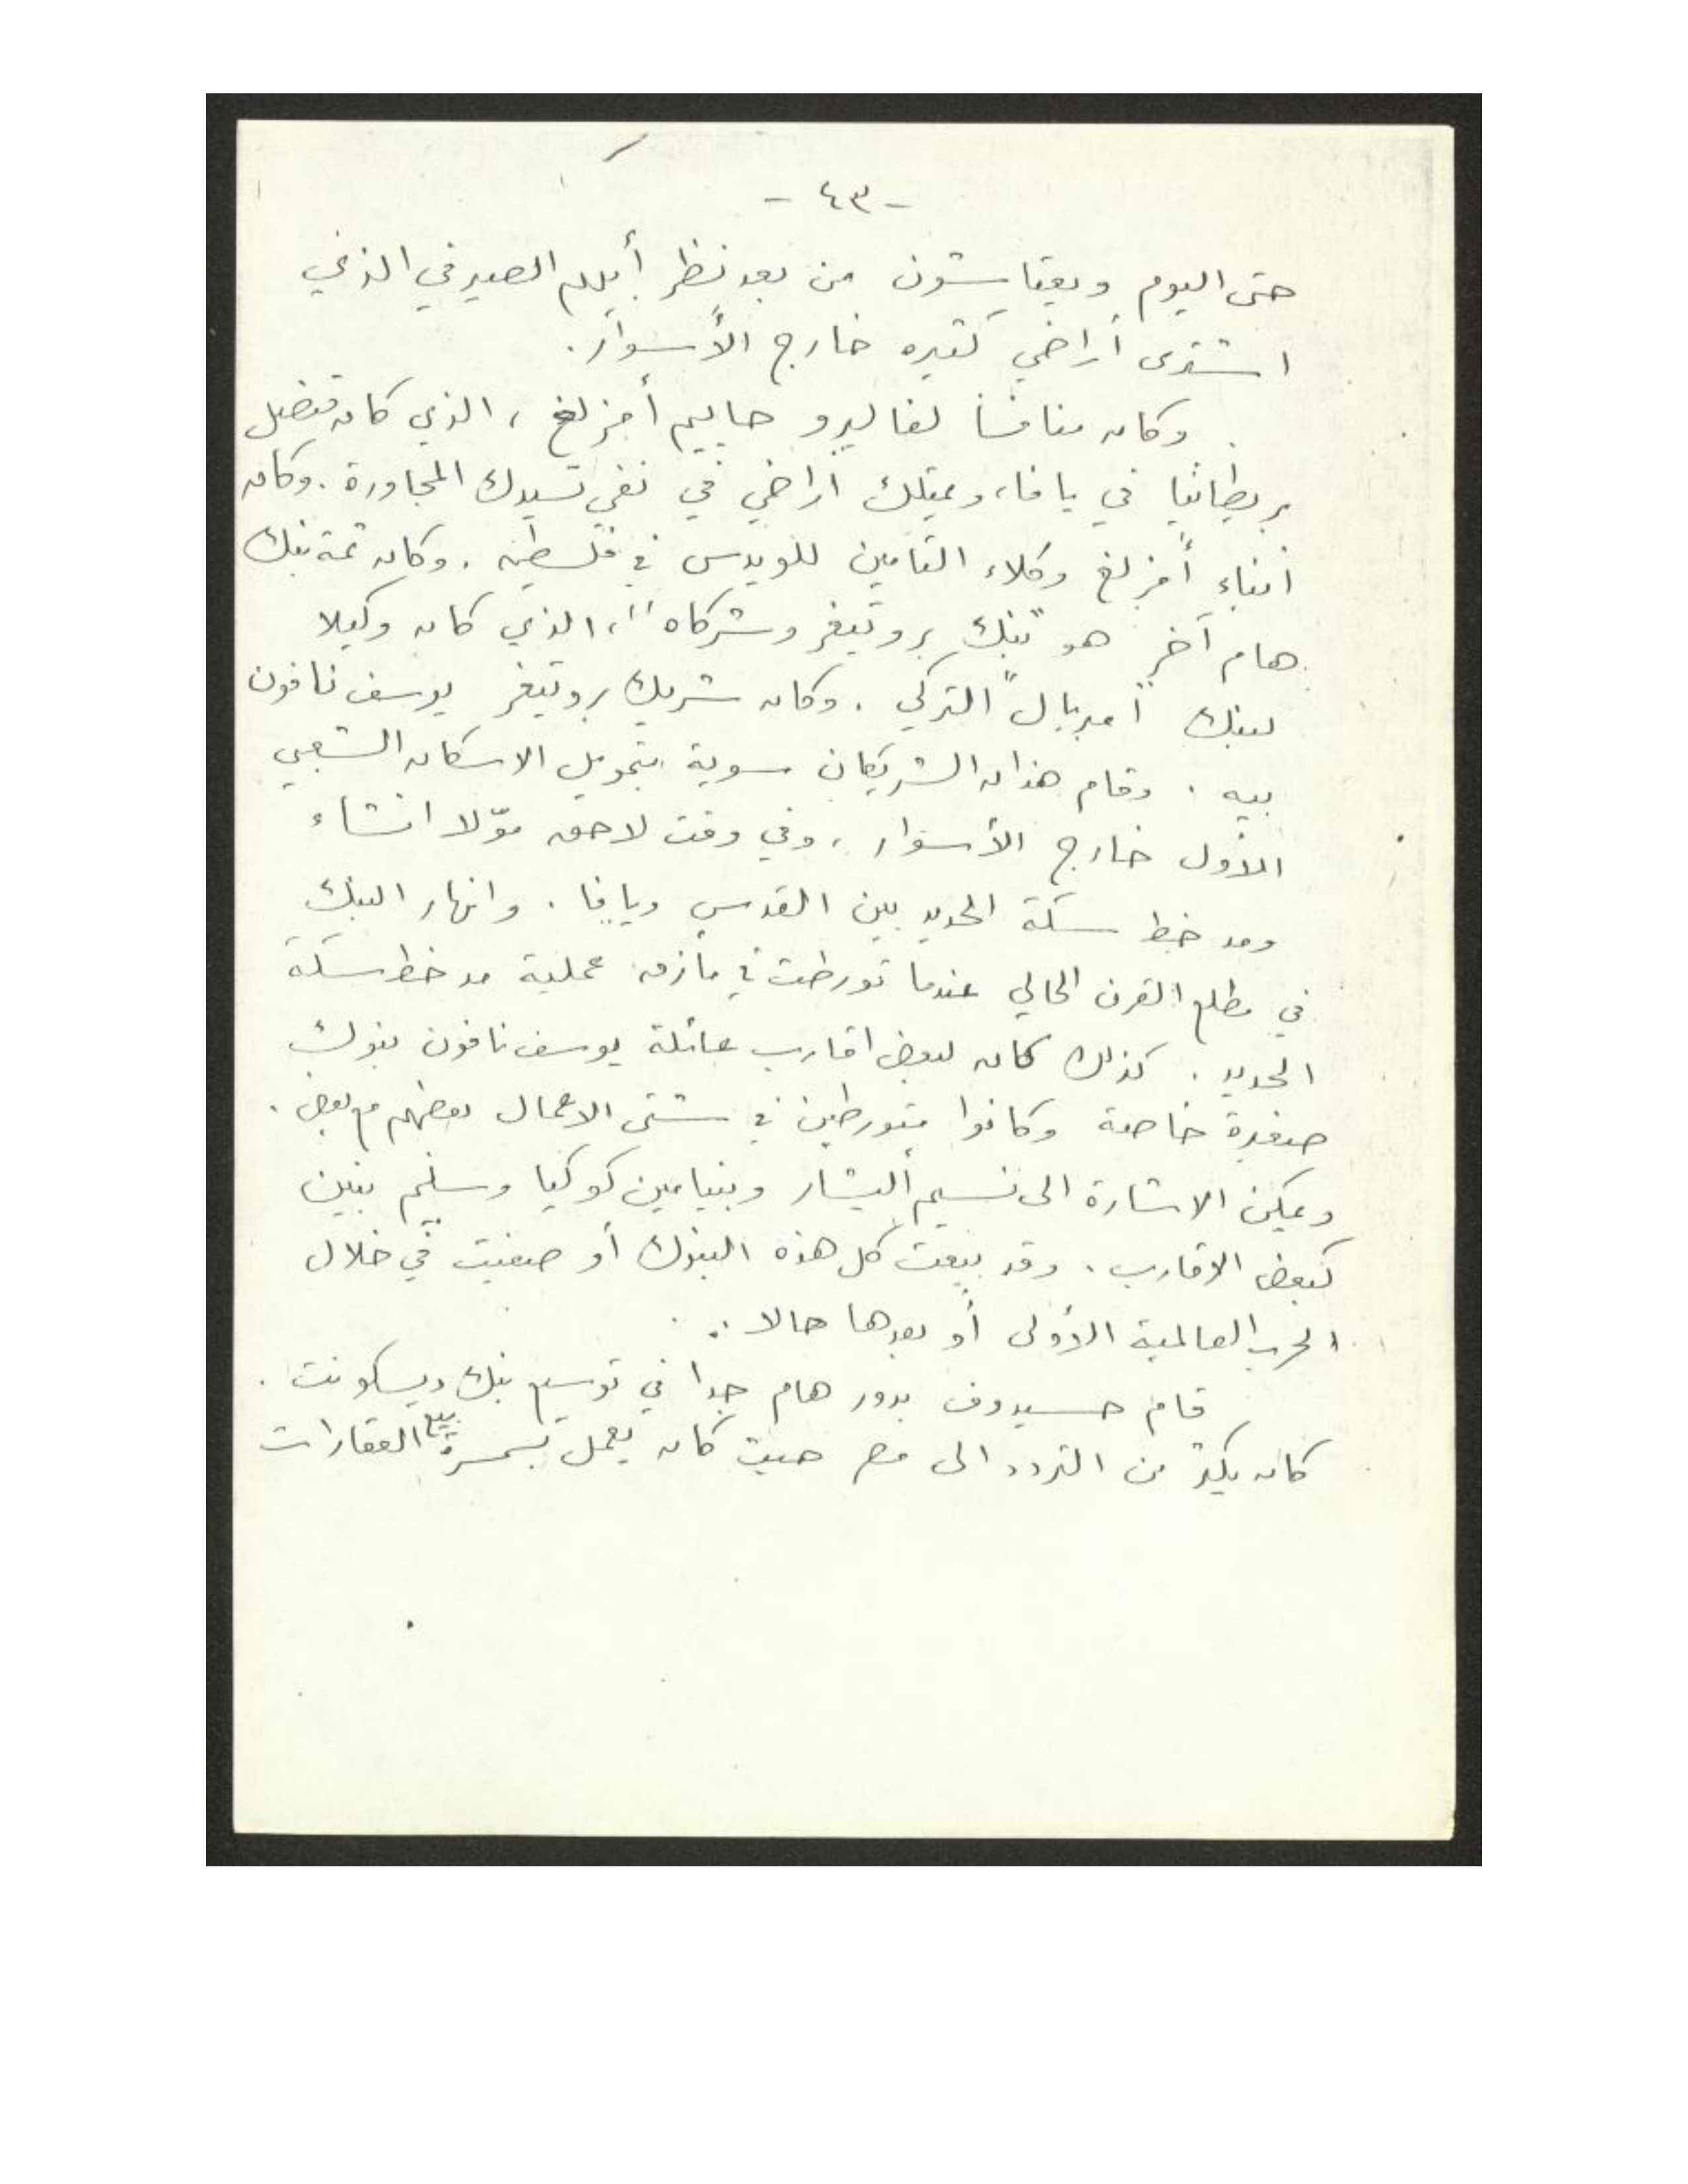 - ٤٣ -
حتى اليوم ويعتاشون من بعد نظر أبيهم الصيرفي الذي
اشترى أراضي كثيره خارج الأسوار.
وكان منافسا لفاليرو حاييم أمزلغ، الذي كان قنصل
بريطانيا في يافا، ويمتلك أراضي في نفي تسيدك المجاورة. وكان
أبناء أمزلغ وكلاء التأمين للويدس في فلسطين. وكان ثمة بنك
هام آخر هو "بنك بروتيغر وشركاه"، الذي كان وكيلا
لبنك "امبريال" التركي. وكان شريك بروتيغر يوسف نافون
بيه. وقام هذان الشريكان سوية بتمويل الاسكان الشعبي
الأول خارج الأسوار، وفي وقت لاحق موّلا انشاء
ومد خط سكة الحديد بين القدس ويافا. وانهار البنك
في مطلع القرن الحالي عندما تورطت في مأزق عملية مد خط سكة
الحديد. كذلك كان لبعض اقارب عائلة يوسف نافون بنوك
صغيرة خاصة وكانوا متورطين في شتى الاعمال بعضهم مع بعض.
ويمكن الاشارة الى نسيم أليشار وبنيامين كوكيا وسليم بنين
كبعض الاقارب. وقد بيعت كل هذه البنوك أو صفيت في خلال
الحرب العالمية الأولى أو بعدها حالا..
قام حسيدوف بدور هام جدا في توسيع بنك ديسكونت.
كان يكثر من التردد الى مصر حيث كان يعمل بسمسرة بيع العقارات